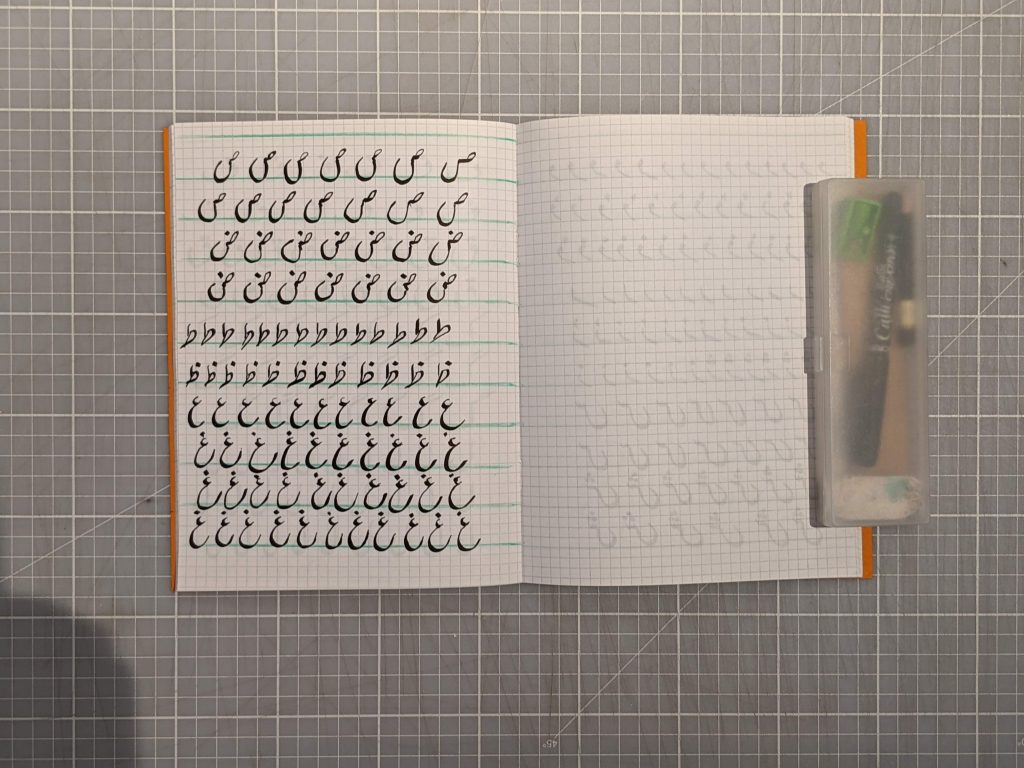 ص ص ص ص ص ص ص
ص ص ص ص ص ص ص
ض ض ض ض ض ض ض
ض ض ض ض ض ض ض
ط ط ط ط ط ط ط ط ط ط ط ط ط ط
ظ ظ ظ ظ ظ ظ ظ ظ ظ ظ ظ ظ
ع ع ع ع ع ع ع ع ع ع ع
غ غ غ غ غ غ غ غ غ غ
غ غ غ غ غ غ غ غ غ غ
غ غ غ غ غ غ غ غ غ غ غ
45°